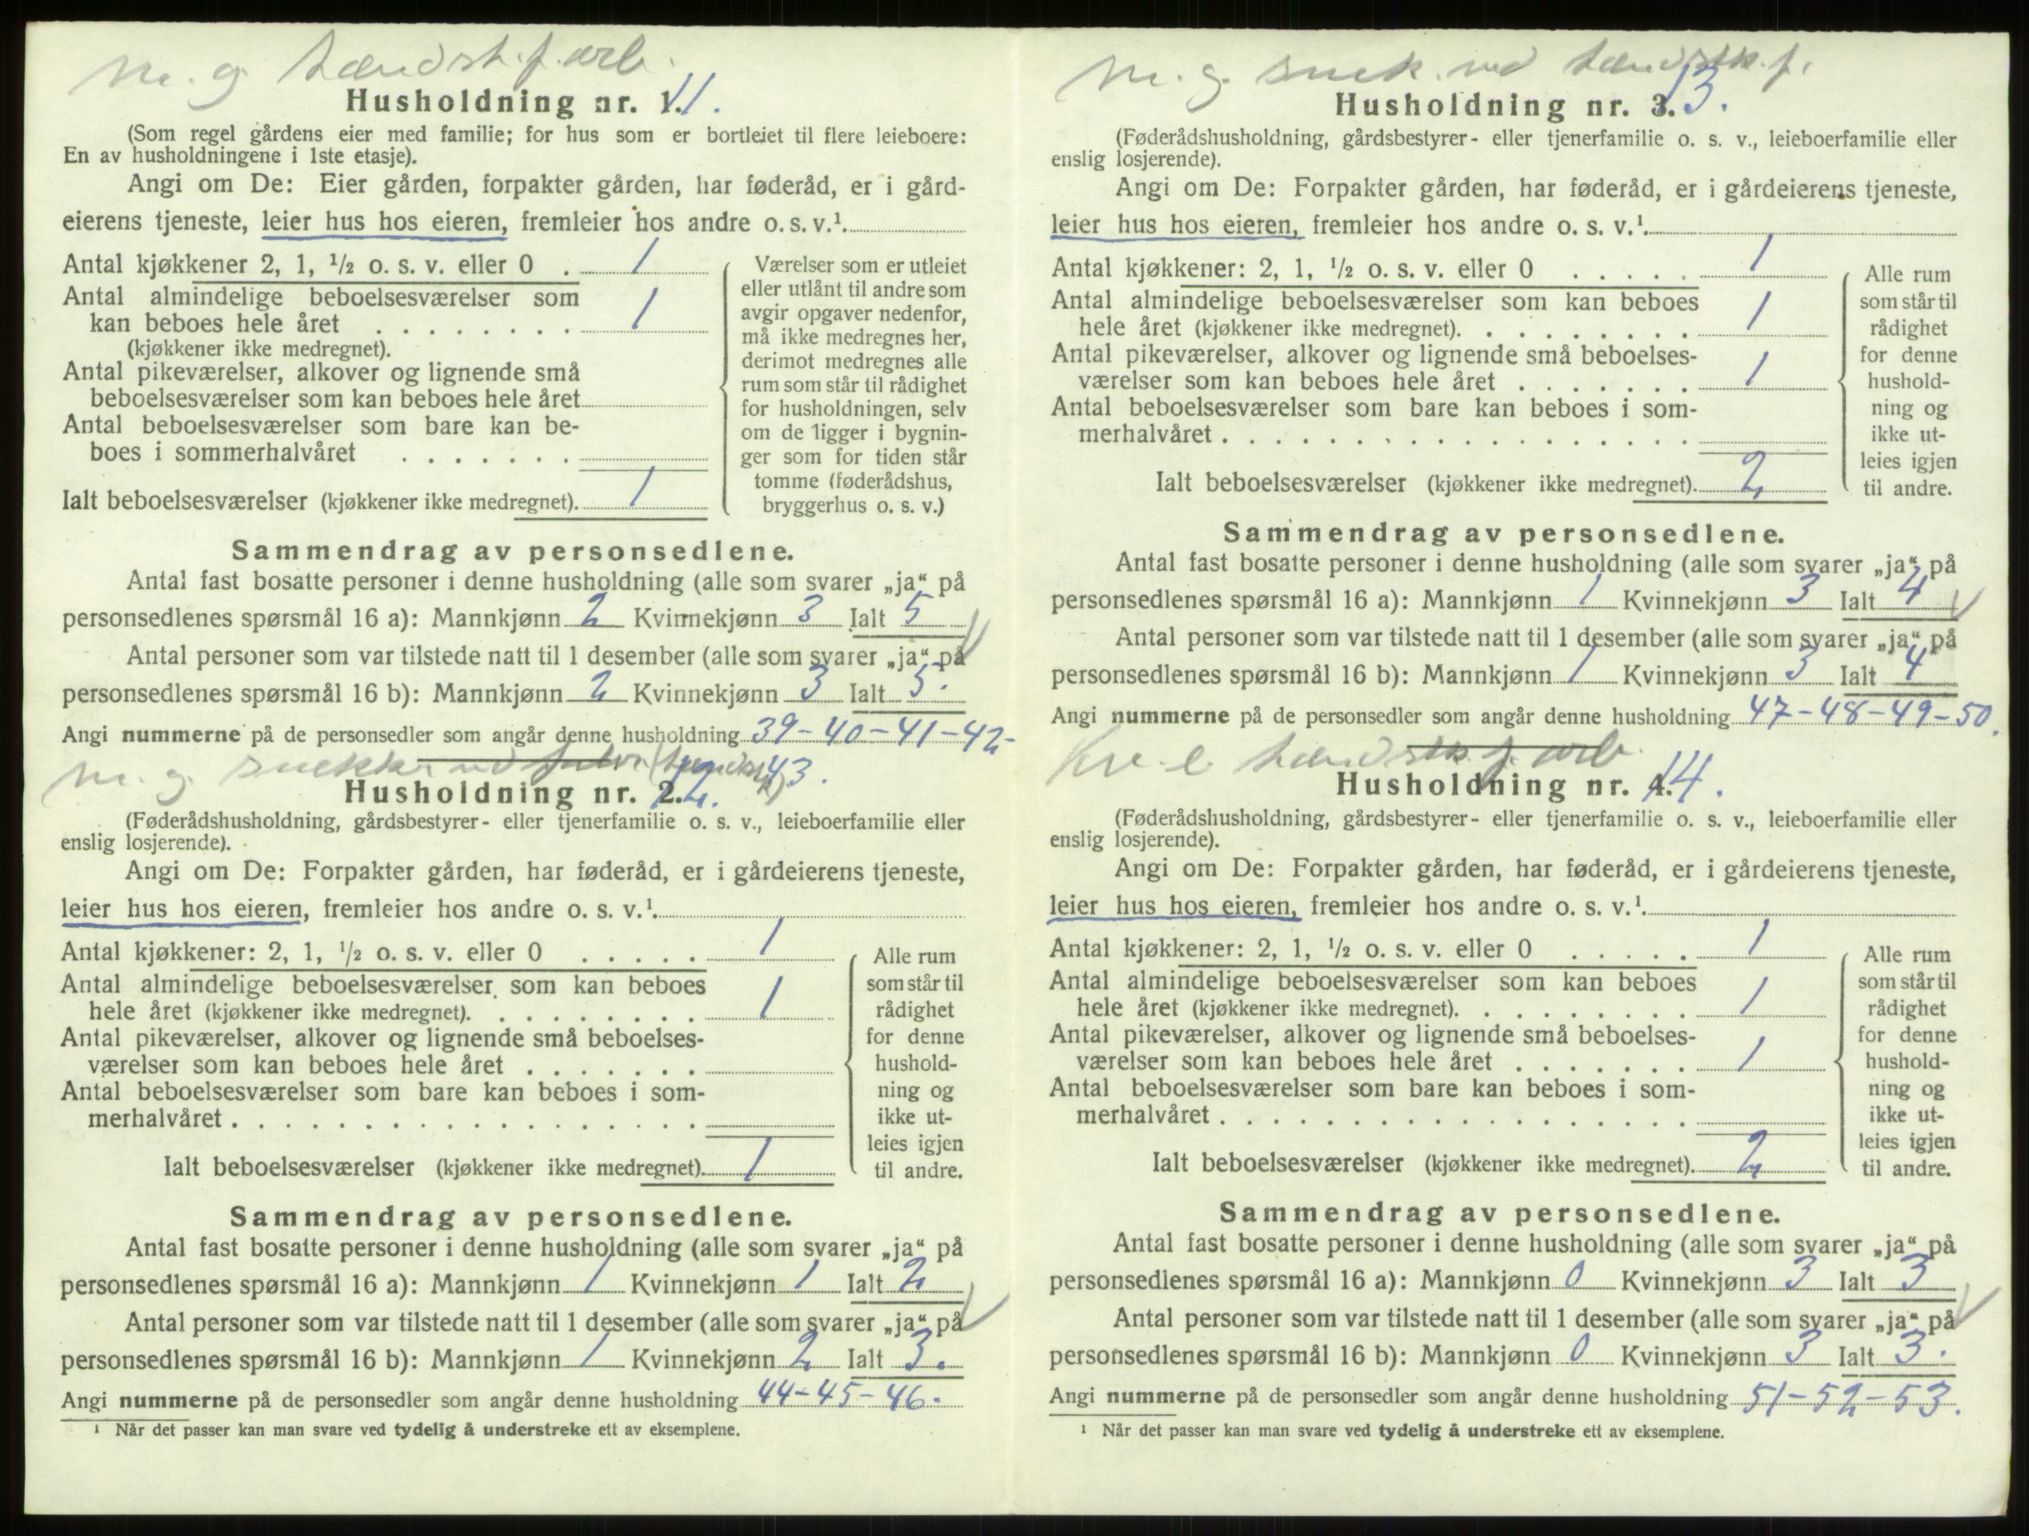 m. g. tændst.f. arb.
Husholdning nr. 11.
(Som regel gårdens eier med familie; for hus som er bortleiet til flere leieboere:
En av husholdningene i 1ste etasje).
Angi om De: Eier gården, forpakter gården, har føderåd, er i gård-
eierens tjeneste, leier hus hos eieren, fremleier hos andre o. s. v.¹.
Antal kjøkkener 2, 1, ½ o. s. v. eller 0 . 1
Antal almindelige beboelsesværelser som
kan beboes hele året . . . . . . . . 1
(kjøkkener ikke medregnet).
Antal pikeværelser, alkover og lignende små
beboelsesværelser som kan beboes hele året
Antal beboelsesværelser som bare kan be-
boes i sommerhalvåret . . . . . . .
Ialt beboelsesværelser (kjøkkener ikke medregnet). 1
Værelser som er utleiet
eller utlånt til andre som
avgir opgaver nedenfor,
må ikke medregnes her,
derimot medregnes alle
rum som står til rådighet
for husholdningen, selv
om de ligger i bygnin-
ger som for tiden står
tomme (føderådshus,
bryggerhus o. s. v.)
Sammendrag av personsedlene.
Antal fast bosatte personer i denne husholdning (alle som svarer „ja“ på
personsedlenes spørsmål 16 a): Mannkjønn 2 Kvinnekjønn 3 Ialt 5
Antal personer som var tilstede natt til 1 desember (alle som svarer „ja“ på
personsedlenes spørsmål 16 b): Mannkjønn 2 Kvinnekjønn 3 Ialt 5.
Angi nummerne på de personsedler som angår denne husholdning 39-40-41-42-
43.
m. g. snekker ved
Husholdning nr. 12.
(Føderådshusholdning, gårdsbestyrer- eller tjenerfamilie o. s. v., leieboerfamilie eller
enslig losjerende).
Angi om De: Forpakter gården, har føderåd, er i gårdeierens tjeneste,
leier hus hos eieren, fremleier hos andre o. s. v.¹.
Antal kjøkkener: 2, 1, ½ o. s. v. eller 0 . . . . . 1
Antal almindelige beboelsesværelser som kan beboes
hele året (kjøkkener ikke medregnet). . . . . . . . . 1
Antal pikeværelser, alkover og lignende små beboelses-
værelser som kan beboes hele året . . . . . . .
Antal beboelsesværelser som bare kan beboes i som-
merhalvåret . . . . . . . . . . . . . . . . . .
Ialt beboelsesværelser (kjøkkener ikke medregnet). 1
Alle rum
som står til
rådighet
for denne
hushold-
ning og
ikke ut-
leies igjen
til andre.
Sammendrag av personsedlene.
Antal fast bosatte personer i denne husholdning (alle som svarer „ja“ på
personsedlenes spørsmål 16 a): Mannkjønn 1 Kvinnekjønn 1 Ialt 2
Antal personer som var tilstede natt til 1 desember (alle som svarer „ja“ på
personsedlenes spørsmål 16 b): Mannkjønn 1 Kvinnekjønn 2 Ialt 3.
Angi nummerne på de personsedler som angår denne husholdning 44-45-46.
¹ Når det passer kan man svare ved tydelig å understreke ett av eksemplene.
m. g. snek. ved tændstk.f.
Husholdning nr. 13.
(Føderådshusholdning, gårdsbestyrer- eller tjenerfamilie o. s. v., leieboerfamilie eller
enslig losjerende).
Angi om De: Forpakter gården, har føderåd, er i gårdeierens tjeneste,
leier hus hos eieren, fremleier hos andre o. s. v.¹.
Antal kjøkkener: 2, 1, ½ o. s. v. eller 0 . . . . . 1
Antal almindelige beboelsesværelser som kan beboes
hele året (kjøkkener ikke medregnet). . . . . . . . . 1
Antal pikeværelser, alkover og lignende små beboelses-
værelser som kan beboes hele året . . . . . . . 1
Antal beboelsesværelser som bare kan beboes i som-
merhalvåret . . . . . . . . . . . . . . . . . .
Ialt beboelsesværelser (kjøkkener ikke medregnet). 2
Alle rum
som står til
rådighet
for denne
hushold-
ning og
ikke ut-
leies igjen
til andre.
Sammendrag av personsedlene.
Antal fast bosatte personer i denne husholdning (alle som svarer „ja“ på
personsedlenes spørsmål 16 a): Mannkjønn 1 Kvinnekjønn 3 Ialt 4
Antal personer som var tilstede natt til 1 desember (alle som svarer „ja“ på
personsedlenes spørsmål 16 b): Mannkjønn 1 Kvinnekjønn 3 Ialt 4
Angi nummerne på de personsedler som angår denne husholdning 47-48-49-50.
Kv. e. tændstk.f. arb.
Husholdning nr. 14.
(Føderådshusholdning, gårdsbestyrer- eller tjenerfamilie o. s. v., leieboerfamilie eller
enslig losjerende).
Angi om De: Forpakter gården, har føderåd, er i gårdeierens tjeneste,
leier hus hos eieren, fremleier hos andre o. s. v.¹.
Antal kjøkkener: 2, 1, ½ o. s. v. eller 0 . . . . . 1
Antal almindelige beboelsesværelser som kan beboes
hele året (kjøkkener ikke medregnet). . . . . . . . . 1
Antal pikeværelser, alkover og lignende små beboelses-
værelser som kan beboes hele året . . . . . . . 1
Antal beboelsesværelser som bare kan beboes i som-
merhalvåret . . . . . . . . . . . . . . . . . .
Ialt beboelsesværelser (kjøkkener ikke medregnet). 2
Alle rum
som står til
rådighet
for denne
hushold-
ning og
ikke ut-
leies igjen
til andre.
Sammendrag av personsedlene.
Antal fast bosatte personer i denne husholdning (alle som svarer „ja“ på
personsedlenes spørsmål 16 a): Mannkjønn 0 Kvinnekjønn 3 Ialt 3
Antal personer som var tilstede natt til 1 desember (alle som svarer „ja“ på
personsedlenes spørsmål 16 b): Mannkjønn 0 Kvinnekjønn 3 Ialt 3.
Angi nummerne på de personsedler som angår denne husholdning 51-52-53.
¹ Når det passer kan man svare ved tydelig å understreke ett av eksemplene.